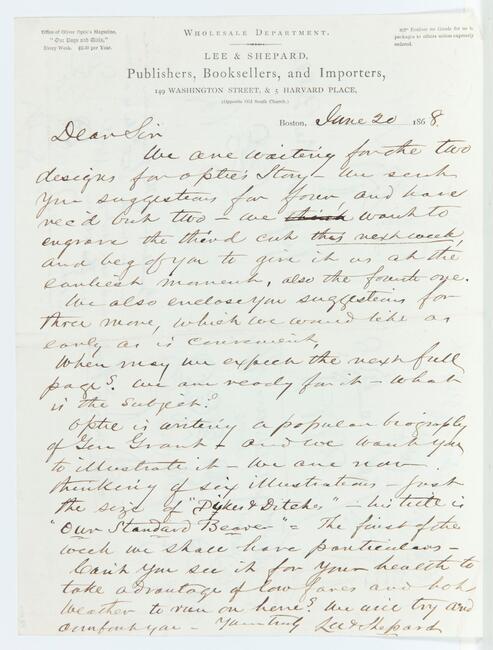 Office of Oliver Optic's Magazine,
"Our Boys and Girls,"
Every Week. $2.50 per Year.
WHOLESALE DEPARTMENT.
LEE & SHEPARD,
Publishers, Booksellers, and Importers,
149 WASHINGTON STREET, & 5 HARVARD PLACE,
(Opposite Old South Church.)
Enclose no Goods for us in
packages to others unless expressly
ordered.
Boston, June 20 1868.
Dear Sir
We are waiting for the two
designs for Optic's Story – We sent
you suggestions for four, and have
rec'd but two – we think want to
engrave the third cut this next week,
and beg of you to give it us at the
earliest moment, also the fourth one.
We also enclose you suggestions for
three more, which we would like as
early as is convenient,
When may we expect the next full
page? We are ready for it – What
is the subject?
Optic is writing a popular biography
of Gen Grant – and we want you
to illustrate it – We are now
thinking of six illustrations – just
the size of "Dikes & Ditches" – his title is
"Our Standard Bearer" = The first of the
week we shall have particulars –
Can't you see it for your health to
take advantage of low fares and hot
weather to run on here? We will try and
comfort you – Yours truly Lee & Shepard